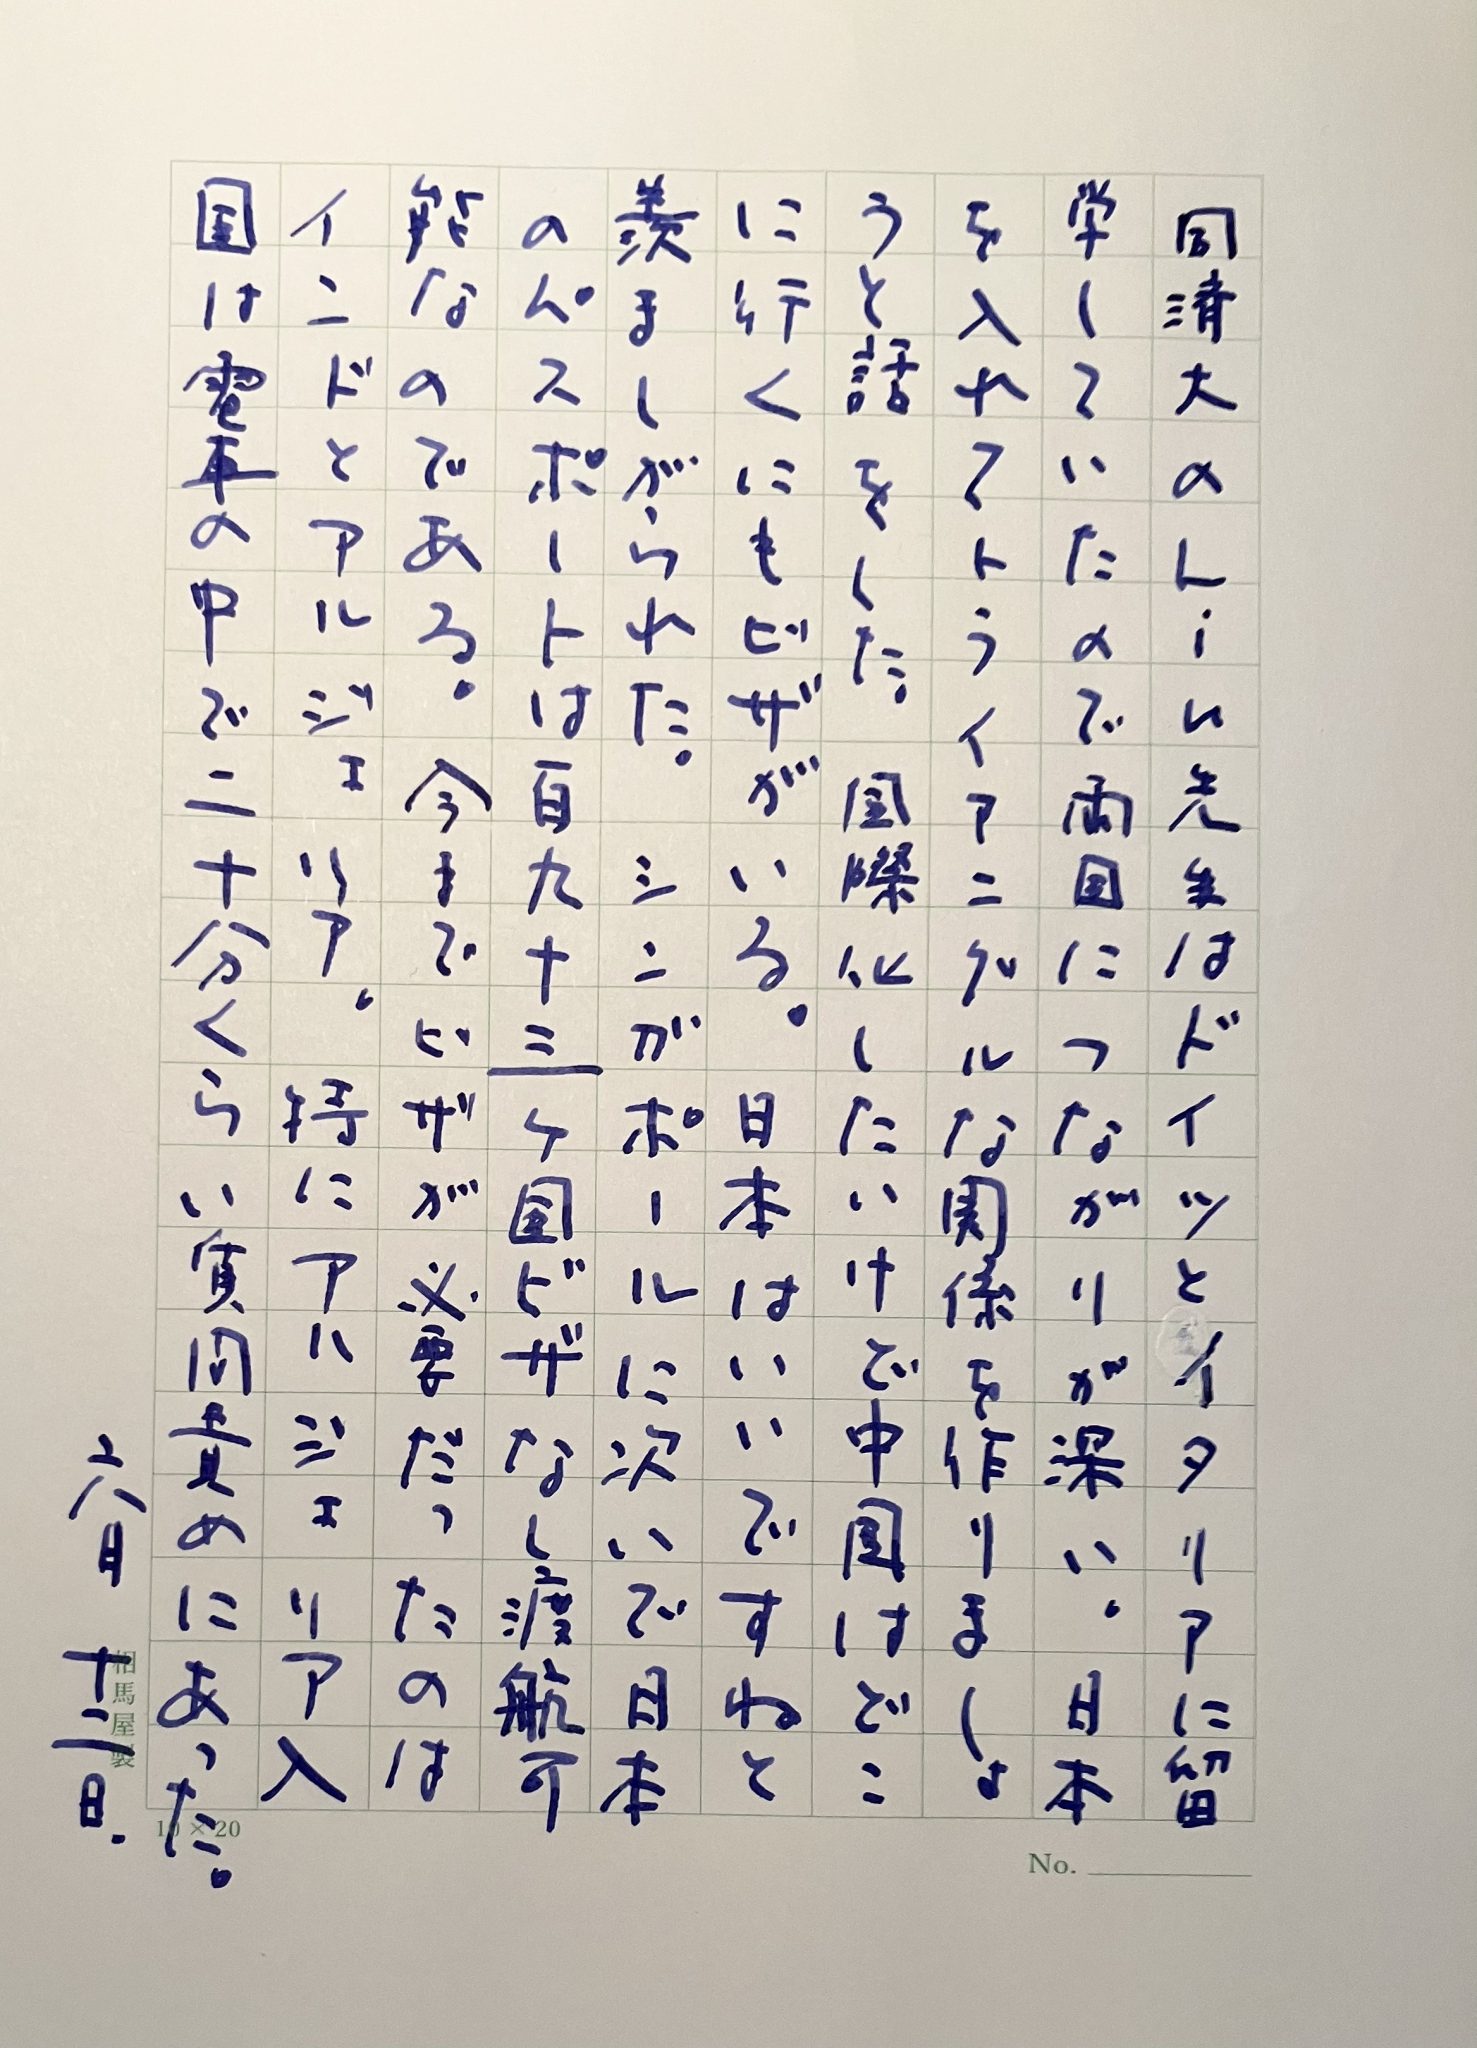 同済大のLin先生はドイツとイタリアに留
学していたので両国につながりが深い。日本
を入れてトライアングルな関係を作りましょ
うと話をした。国際化したいけど中国はどこ
に行くにもビザがいる。日本はいいですねと
羨ましがられた。シンガポールに次いで日本
のパスポートは百九十三ヶ国ビザなし渡航可
能なのである。今までビザが必要だったのは
インドとアルジェリア。特にアルジェリア入
国は電車の中で二十分くらい質問責めにあった。
六月十二日.
相馬屋製
10×20
No.